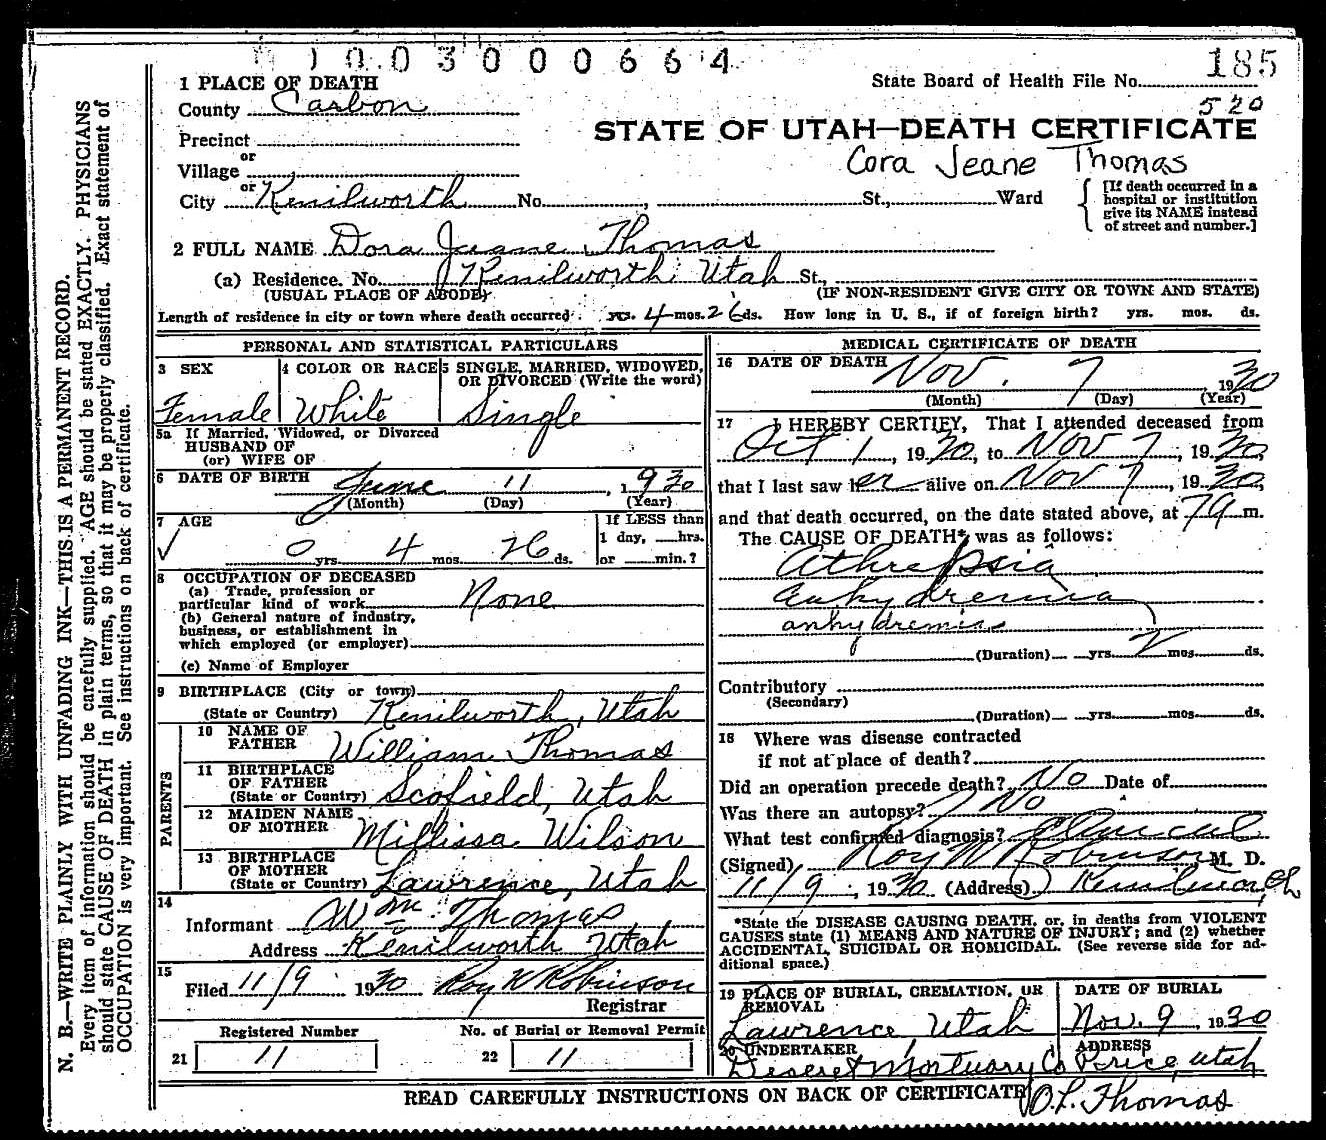 1003000664
185
1 PLACE OF DEATH
State Board of Health File No.
County Carbon
520
STATE OF UTAH—DEATH CERTIFICATE
Precinct
or
Village
Cora Jeane Thomas
or
City Kenilworth No. , St., Ward
[If death occurred in a
hospital or institution
give its NAME instead
of street and number.]
2 FULL NAME Dora Jeane Thomas
(a) Residence. No. Kenilworth Utah St.,
(USUAL PLACE OF ABODE) (IF NON-RESIDENT GIVE CITY OR TOWN AND STATE)
Length of residence in city or town where death occurred yrs. 4 mos. 26 ds. How long in U. S., if of foreign birth? yrs. mos. ds.
PERSONAL AND STATISTICAL PARTICULARS
3 SEX
Female
4 COLOR OR RACE
White
5 SINGLE, MARRIED, WIDOWED,
OR DIVORCED (Write the word)
Single
5a If Married, Widowed, or Divorced
HUSBAND OF
(or) WIFE OF
6 DATE OF BIRTH June 11, 1930
(Month) (Day) (Year)
7 AGE
0 yrs. 4 mos. 26 ds.
If LESS than
1 day, hrs.
or min.?
8 OCCUPATION OF DECEASED
(a) Trade, profession or
particular kind of work None
(b) General nature of industry,
business, or establishment in
which employed (or employer)
(c) Name of Employer
9 BIRTHPLACE (City or town)
(State or Country) Kenilworth, Utah
PARENTS
10 NAME OF
FATHER William Thomas
11 BIRTHPLACE
OF FATHER
(State or Country) Scofield, Utah
12 MAIDEN NAME
OF MOTHER Millissa Wilson
13 BIRTHPLACE
OF MOTHER
(State or Country) Lawrence, Utah
14
Informant Wm. Thomas
Address Kenilworth Utah
15
Filed 11/9 1930 Roy W Robinson
Registrar
Registered Number
21 11
No. of Burial or Removal Permit
22 11
MEDICAL CERTIFICATE OF DEATH
16 DATE OF DEATH Nov. 7 1930
(Month) (Day) (Year)
17 I HEREBY CERTIFY, That I attended deceased from
Oct 1, 1930, to Nov 7, 1930,
that I last saw her alive on Nov 7, 1930,
and that death occurred, on the date stated above, at 7a m.
The CAUSE OF DEATH* was as follows:
Athrepsia
Anhydremia
anhydremia
(Duration) yrs. 2 mos. ds.
Contributory
(Secondary)
(Duration) yrs. mos. ds.
18 Where was disease contracted
if not at place of death?
Did an operation precede death? No Date of
Was there an autopsy? No
What test confirmed diagnosis? Clinical
(Signed) Roy W Robinson, M. D.
11/9, 1930 (Address) Kenilworth
*State the DISEASE CAUSING DEATH, or, in deaths from VIOLENT
CAUSES state (1) MEANS AND NATURE OF INJURY; and (2) whether
ACCIDENTAL, SUICIDAL OR HOMICIDAL. (See reverse side for ad-
ditional space.)
19 PLACE OF BURIAL, CREMATION, OR
REMOVAL
Lawrence Utah
DATE OF BURIAL
Nov. 9, 1930
20 UNDERTAKER
Deseret Mortuary Co
ADDRESS
Price, Utah
READ CAREFULLY INSTRUCTIONS ON BACK OF CERTIFICATE
O. L. Thomas
N. B.—WRITE PLAINLY WITH UNFADING INK—THIS IS A PERMANENT RECORD.
Every item of information should be carefully supplied. AGE should be stated EXACTLY. PHYSICIANS
should state CAUSE OF DEATH in plain terms, so that it may be properly classified. Exact statement of
OCCUPATION is very important. See instructions on back of certificate.